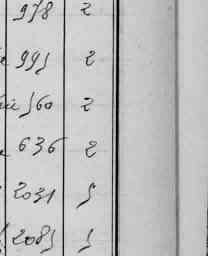 978 2
995 2
560 2
636 2
2031 5
2085 5